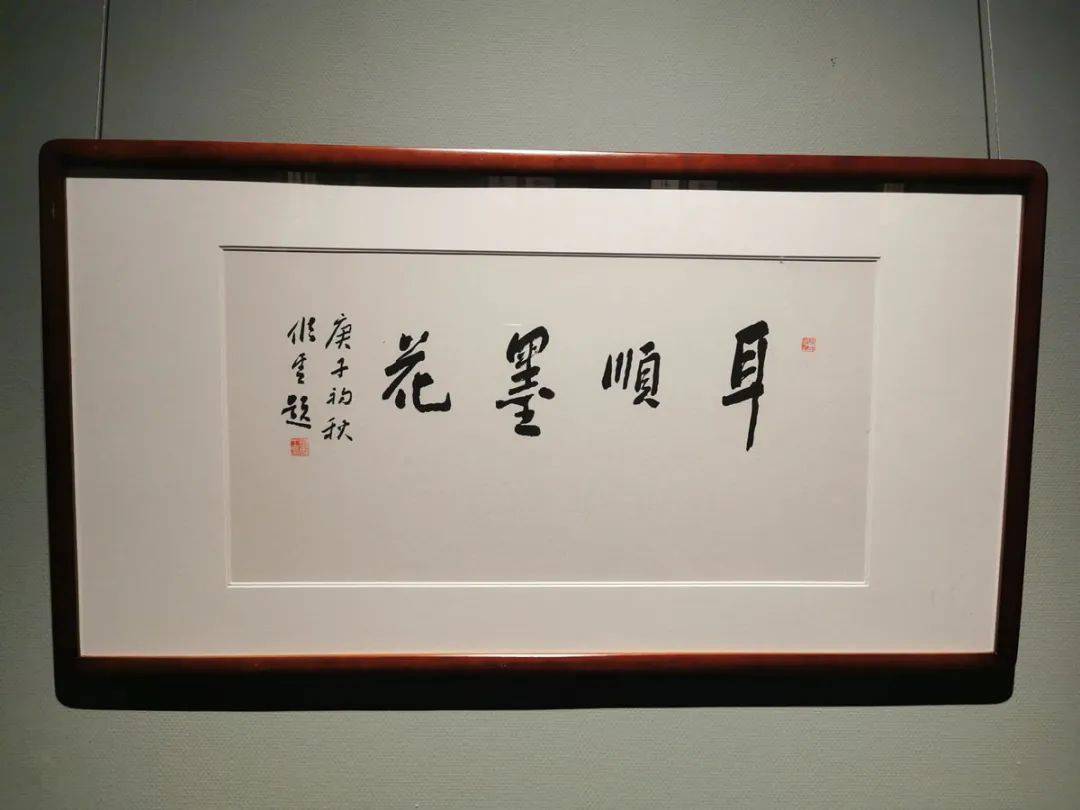 耳順墨花
庚子初秋
修雲題